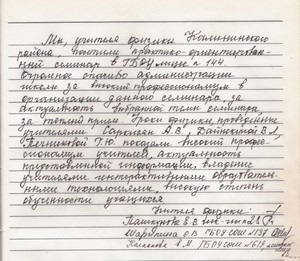 Мы, учителя физики Калининского
района, посетили практико-ориентирован-
ный семинар в ГБОУ лицее № 144.
Огромное спасибо администрации
школы за высокий профессионализм в
организации данного семинара, за
актуальность выбранной темы семинара,
за теплый прием. Уроки физики, проведенные
учителями Саркисян А.В.,
Т.Ю. показали высокий профес-
сионализм учителей, актуальность
подготовленной информации, владение
учителями интерактивными образователь-
ными технологиями, высокую степень
обученности учащихся
Учителя физики:
Пашкунова Е.В.
О.В ГБОУ СОШ №137
А.М. ГБОУ СОШ №619